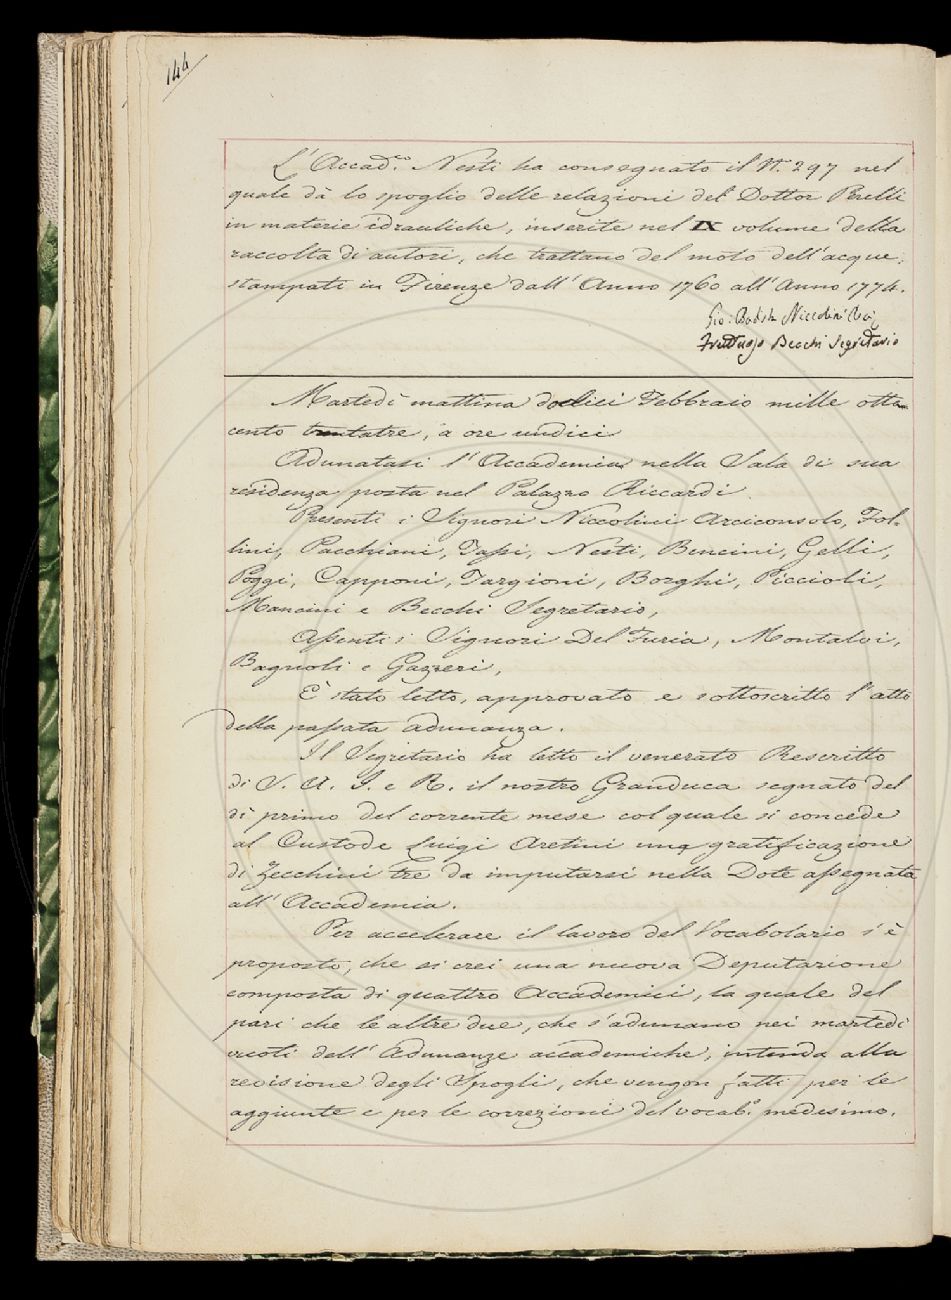 144
L'Accad.co Nesti ha consegnato il N. 297 nel
quale dà lo spoglio delle relazioni del Dottor Perelli
in materie idrauliche, inserite nel IX volume della
raccolta di autori, che trattano del moto dell'acque,
stampati in Firenze dall'Anno 1760 all'Anno 1774.
Gio: Batista Niccolini
Fruttuoso Becchi Segretario
Martedì mattina dodici Febbraio mille otto
cento trentatre, a ore undici
Adunatasi l'Accademia nella Sala di sua
residenza posta nel Palazzo Riccardi
Presenti i Signori Niccolini Arciconsolo, Fol-
lini, Pacchiani, Tassi, Nesti, Bencini, Gelli,
Poggi, Capponi, Targioni, Borghi, Piccioli,
Mancini e Becchi Segretario,
Assenti i Signori Del Furia, Montalvi,
Bagnoli e Gazzeri,
È stato letto, approvato e sottoscritto l'atto
della passata adunanza.
Il Segretario ha letto il venerato Rescritto
di S. A. I. e R. il nostro Granduca segnato del
dì primo del corrente mese col quale si concede
al Custode Luigi Aretini una gratificazione
di Zecchini tre da imputarsi nella Dote assegnata
all'Accademia.
Per accelerare il lavoro del Vocabolario s'è
proposto, che si crei una nuova Deputazione
composta di quattro Accademici, la quale del
pari che le altre due, che s'adunano nei martedì
vuoti dell'Adunanze accademiche, intenda alla
revisione degli Spogli, che vengon fatti per le
aggiunte e per le correzioni del vocab.o medesimo.